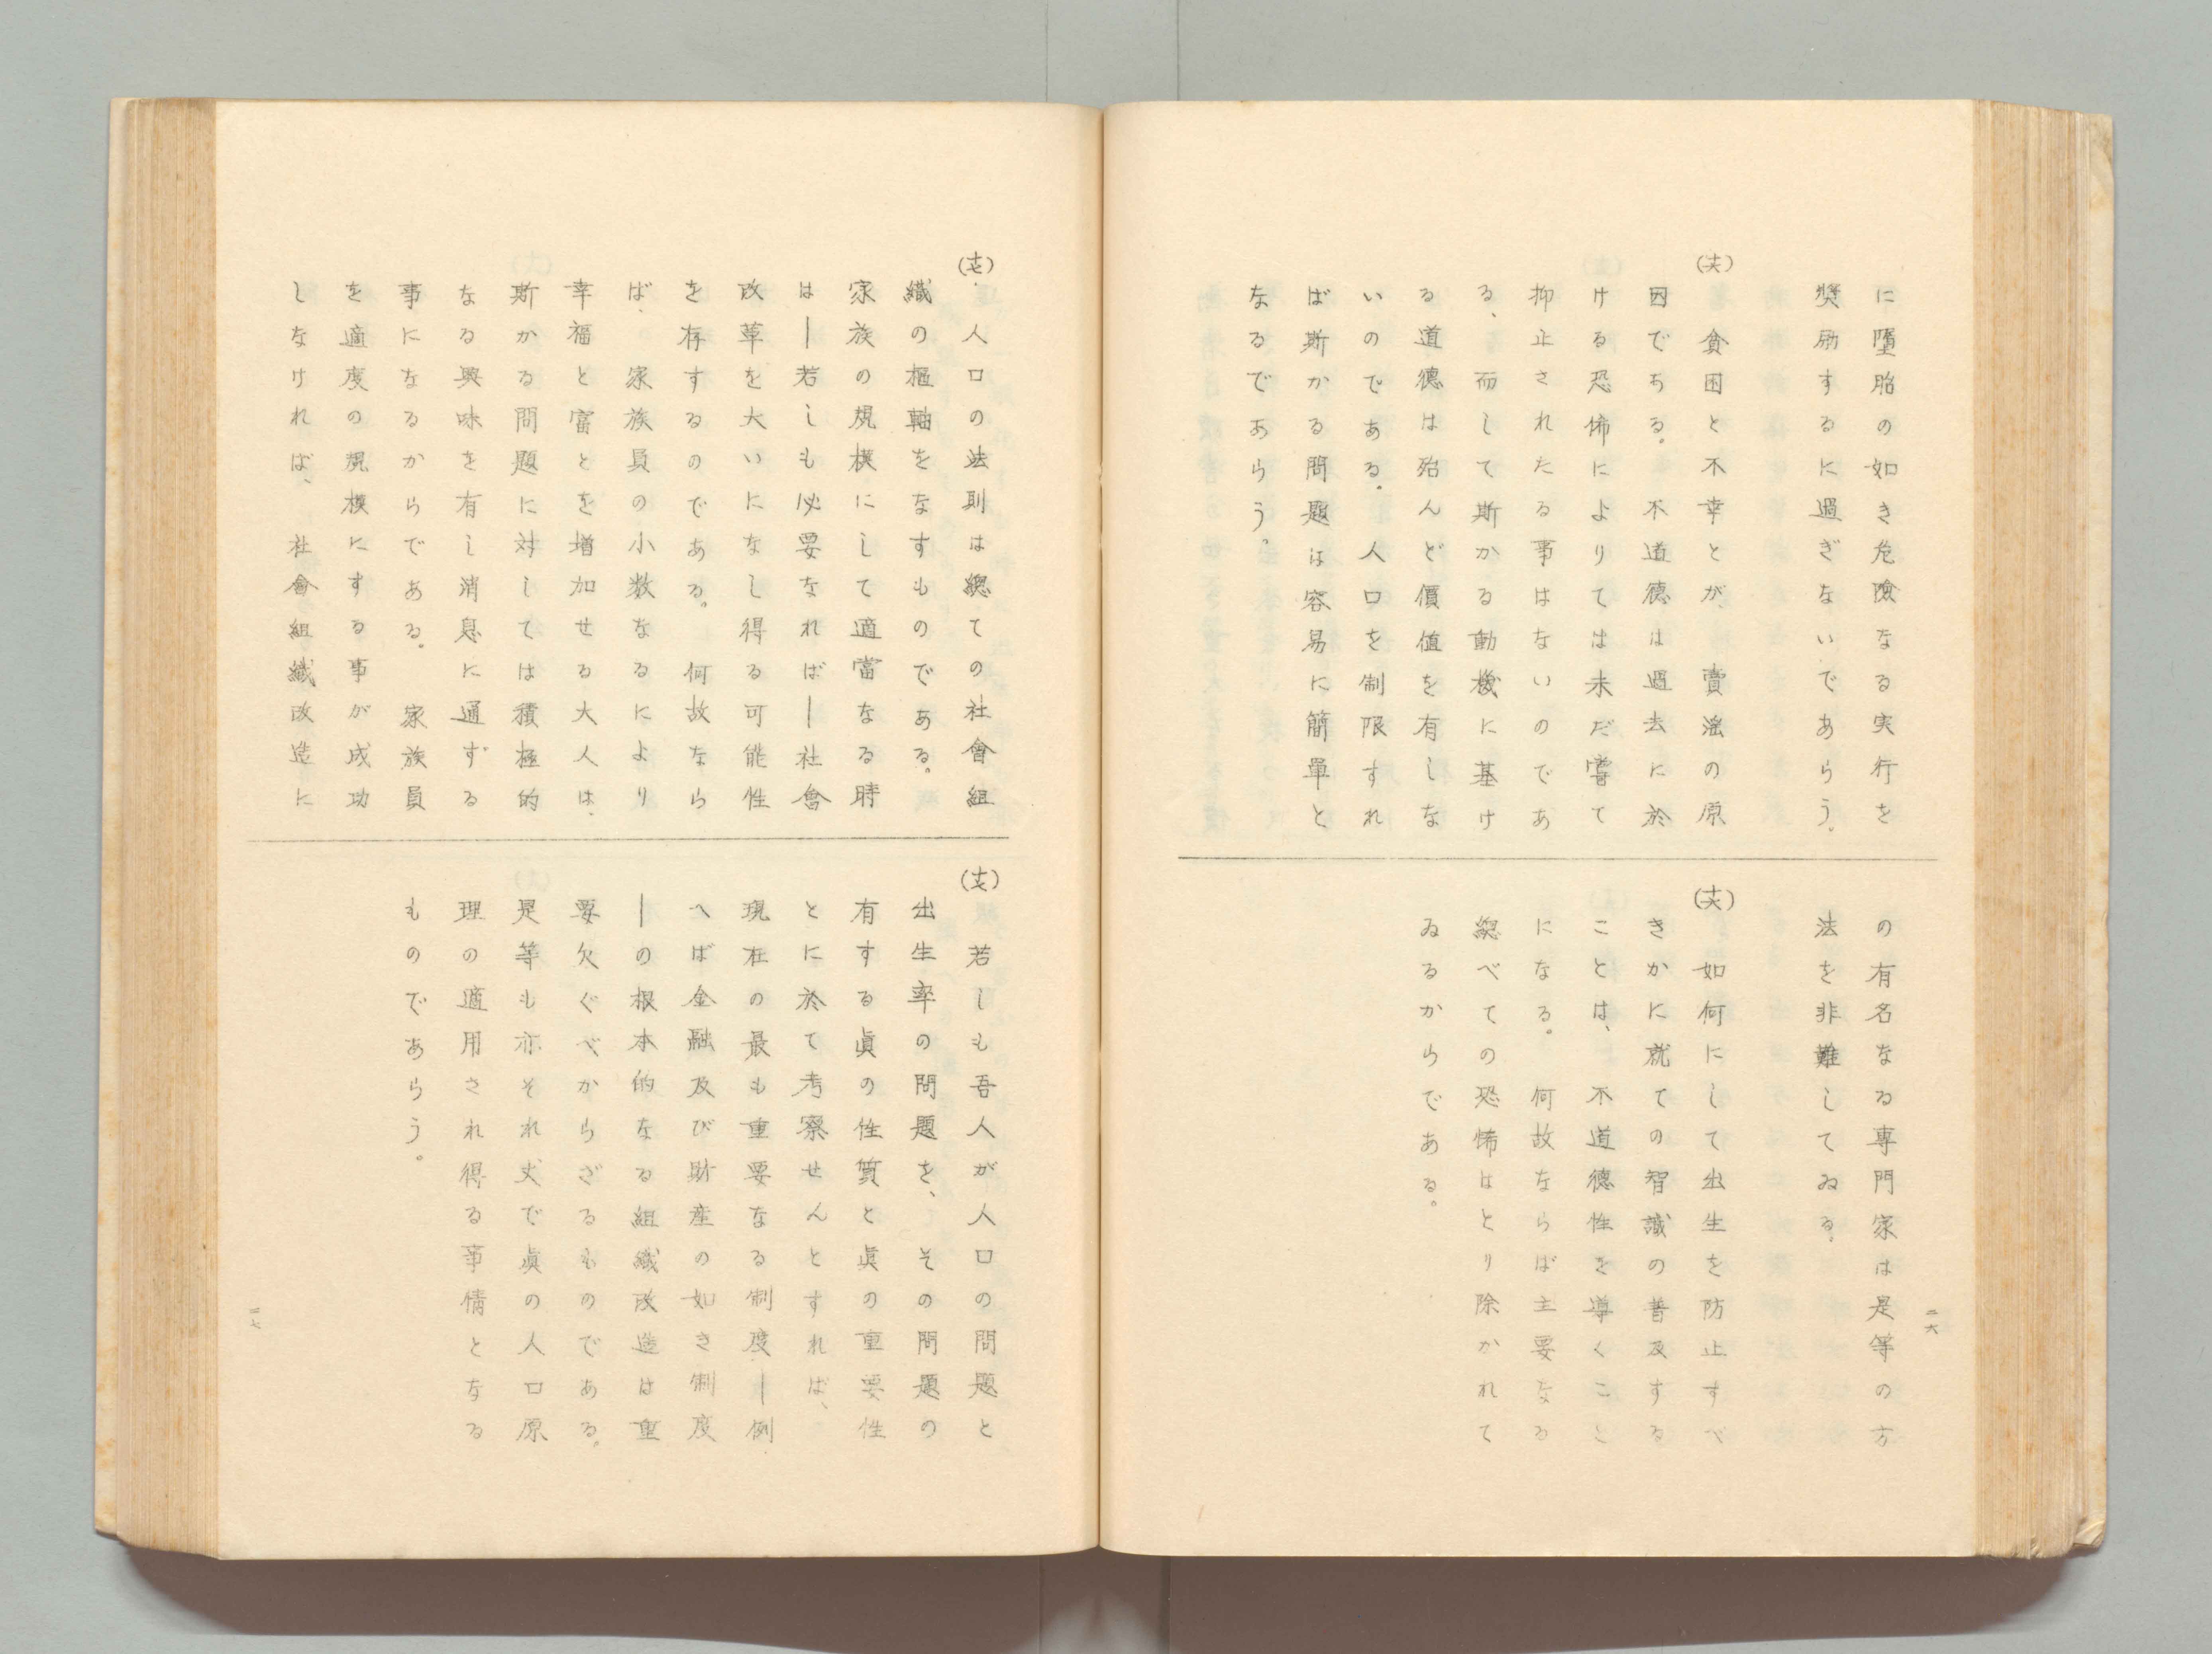 に墮胎の如き危險なる実行を
奬励するに過ぎないであらう。
(十六)
貧困と不幸とが、賣淫の原
因でちる。不道德は過去に於
ける恐怖によりては未だ嘗て
抑止されたる事はないのであ
る、而して斯かる動機に基け
る道德は殆んど價値を有しな
いのである。人口を制限すれ
ば斯かる問題は容易に簡單と
なるであらう。
の有名なる專門家は是等の方
法を非難してゐる。
(十六)
如何にして出生を防止すべ
きかに就ての智識の普及する
ことは、不道德性を導くこと
になる。何故ならば主要なる
總べての恐怖はとり除かれて
ゐるからである。
二六
(十七)
人口の法則は總ての社會組
織の樞軸をなすものである。
家族の規模にして適當なる時
は―若しも必要なれば―社會
改革を大いになし得る可能性
を存するのである。何故なら
ば、家族員の小数なるにより
幸福と富とを増加せる大人は、
斯かる問題に対しては積極的
なる興味を有し消息に通ずる
事になるからである。家族員
を適度の規模にする事が成功
しなければ、社會組織改造に
(十七)
若しも吾人が人口の問題と
出生率の問題を、その問題の
有する眞の性質と眞の重要性
とに於て考察せんとすれば、
現在の最も重要なる制度―例
へば金融及び財産の如き制度
―の根本的なる組織改造は重
要欠ぐべからざるものである。
是等も亦それ丈で眞の人口原
理の適用され得る事情となる
ものであらう。
二七